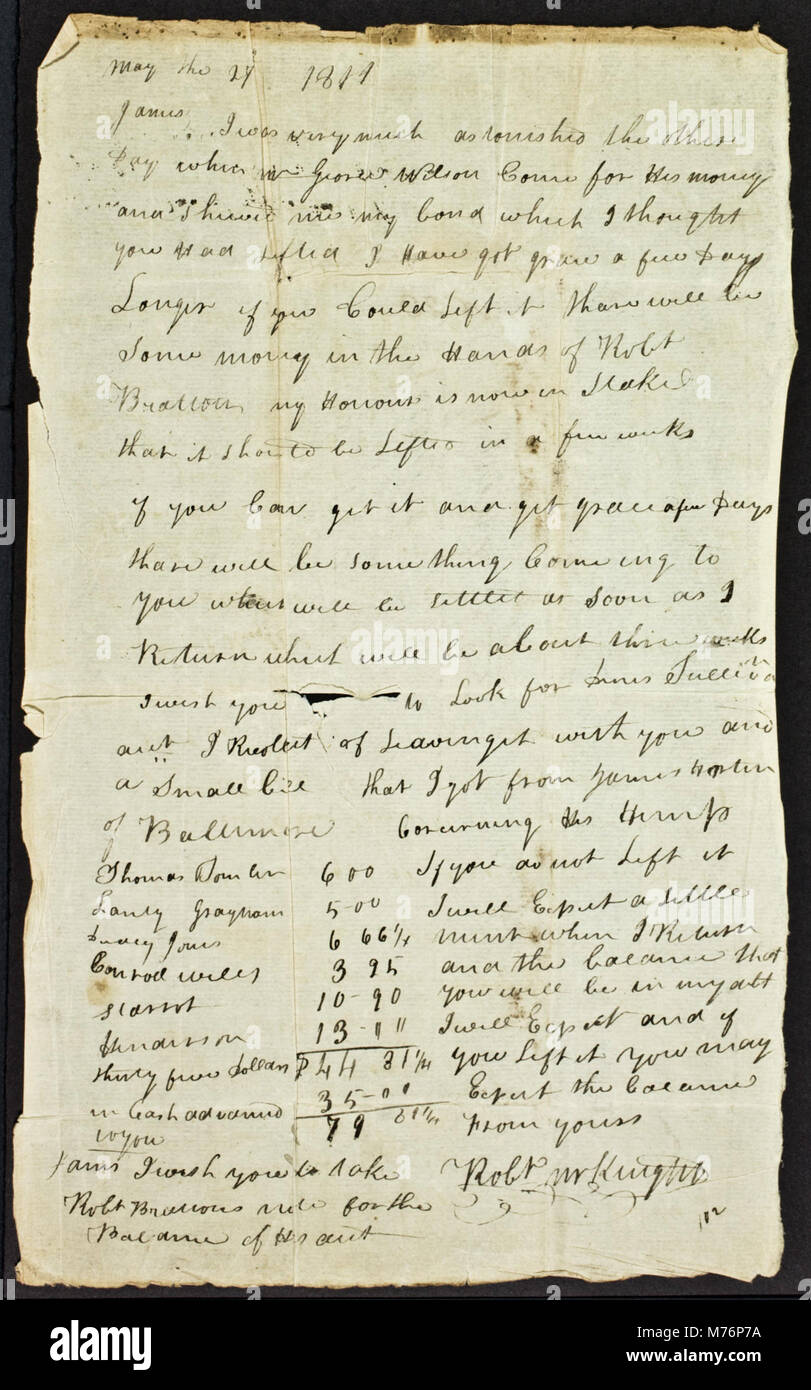 May the 27 1811
James
I was very much astonished the other
Day when Mr George Wilson Come for His money
and Shewed me my bond which I thought
you Had Lifted I Have got grace a few Days
Longer if you Could Lift it thare will be
Some money in the Hands of Robt
Bratton my Honour is now in Stake
that it should be Lifted in a few weeks
if you Can get it and get grace a few Days
thare will be something Comeing to
you which will be settled as soon as I
Return which will be about three weeks
I wish you to Look for Sullivan
act I Recolect of Leaving it with you and
a Small bill that I got from James
of Baltimore Concerning His Hemp
Thomas 6 00 If you do not Lift it
Grayham 5-00 I will Expect a settle
Jones 6 66 1/4 ment when I Return
Conrod wills 3 95 and the balance that
10-90 you will be in my dbt
Hinderson 13-11 I will Expect and if
thirty five Dollars $44 81 1/4 you Lift it you may
35-00 Expect the balance
in Cash advanced 79 81 1/4 From yours
to you
James I wish you to take Robt McKnight
Robt Brattons note for the
Balance of His act
112
alamy
a
www.alamy.com
Image ID: M76P7A
M76P7A